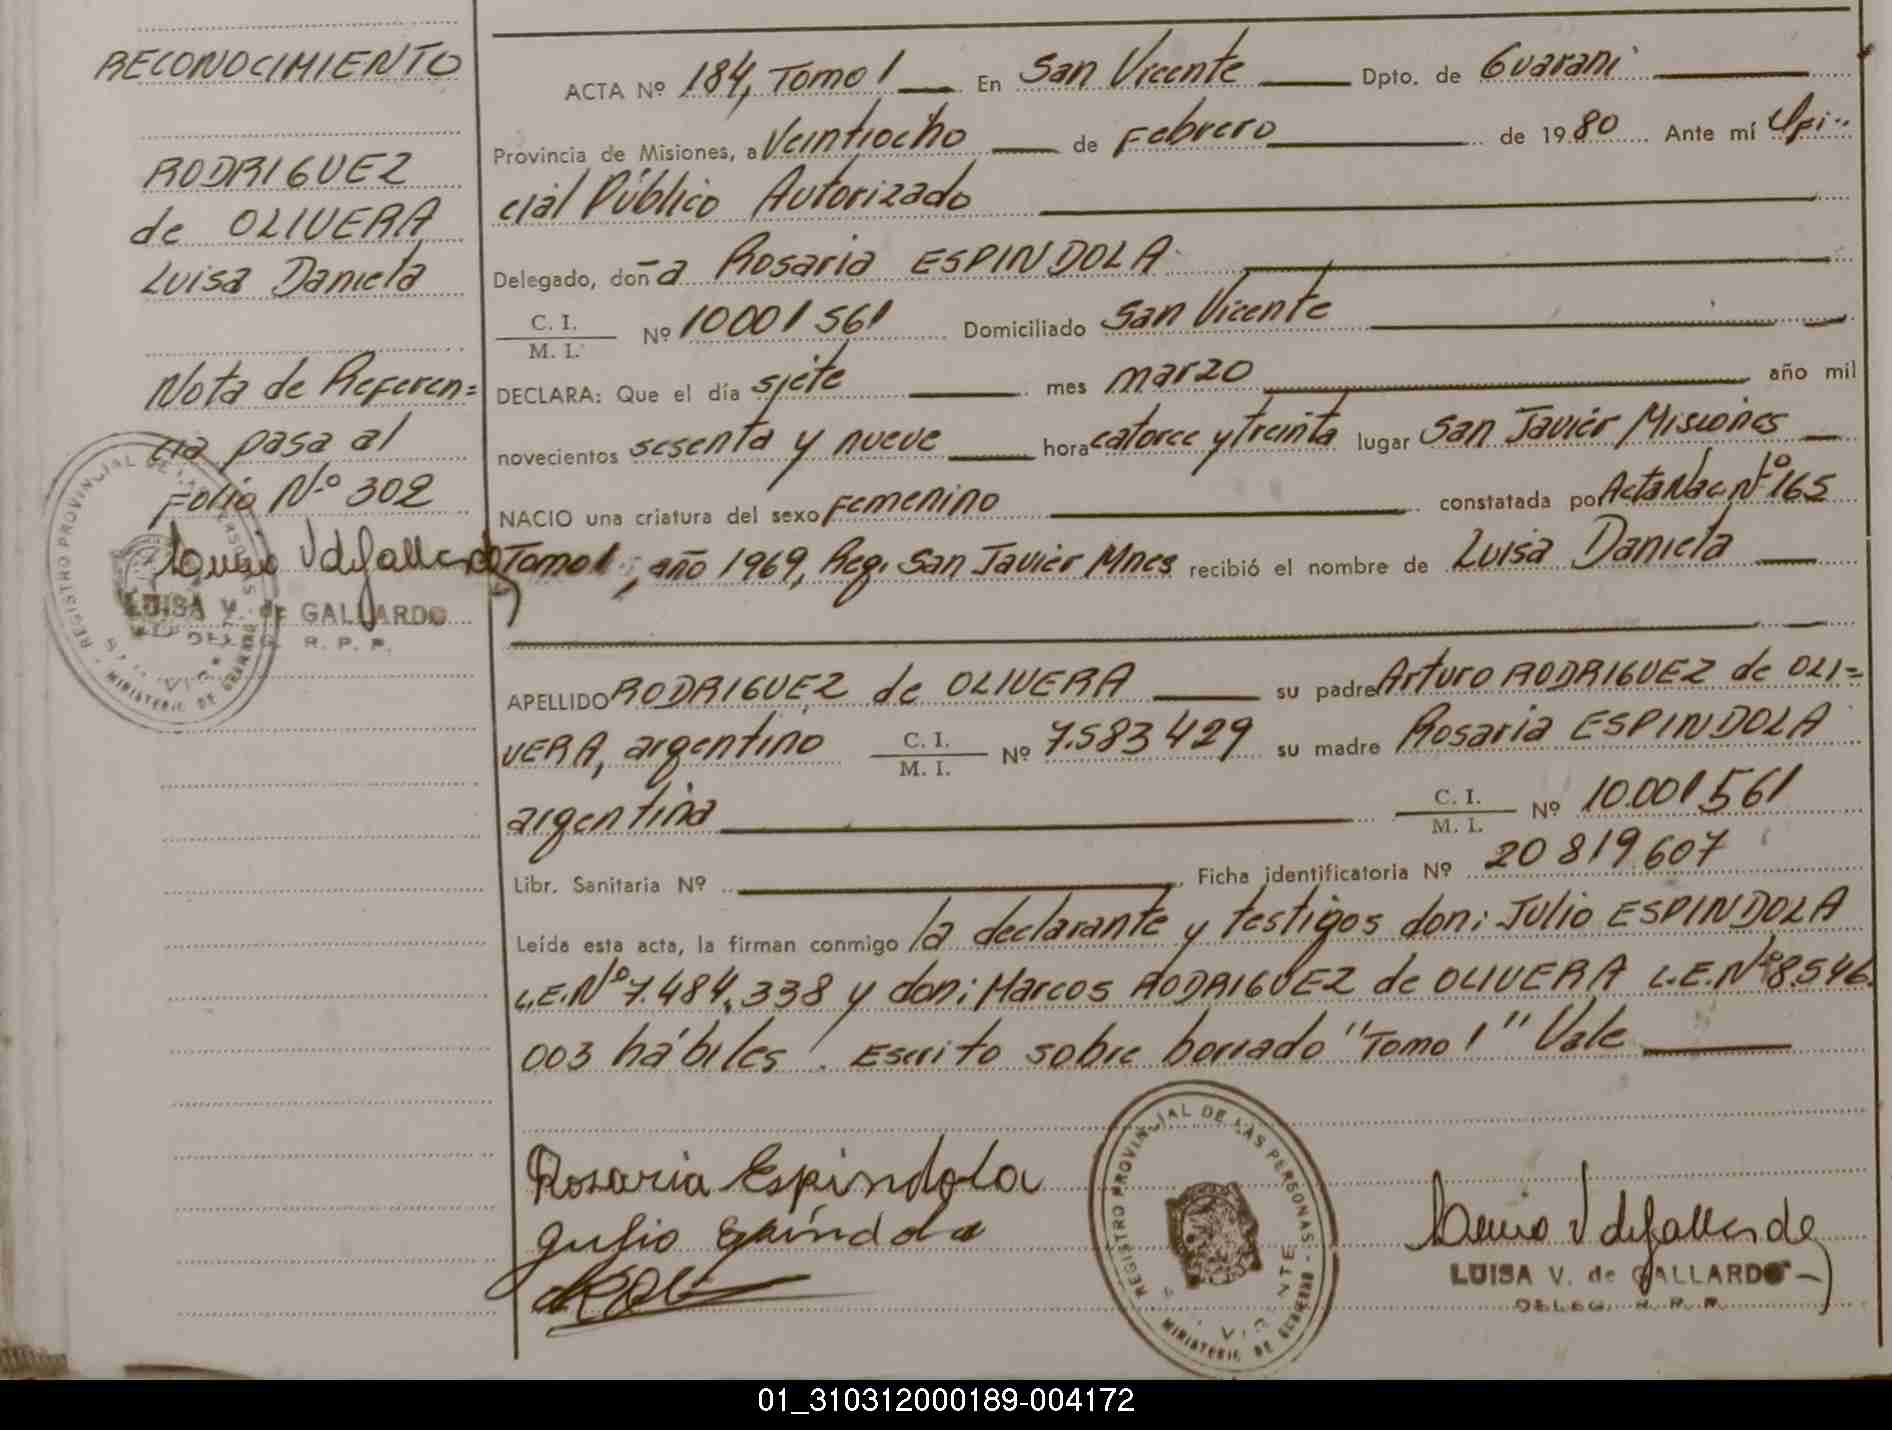 RECONOCIMIENTO
RODRIGUEZ
de OLIVERA
Luisa Daniela
Nota de Referen=
cia pasa al
Folio Nº 302
LUISA V. de GALLARDO
DELEG. R. P. P.
REGISTRO PROVINCIAL DE LAS PERSONAS - MINISTERIO DE GOBIERNO -
ACTA Nº 184, Tomo 1 En San Vicente Dpto. de Guaraní
Provincia de Misiones, a Veintiocho de Febrero de 1980 Ante mí Ofi-
cial Público Autorizado
Delegado, doña Rosaria ESPINDOLA
C. I.
M. I. Nº 10001561 Domiciliado San Vicente
DECLARA: Que el día siete mes marzo año mil
novecientos sesenta y nueve hora catorce y treinta lugar San Javier Misiones
NACIO una criatura del sexo Femenino constatada por Acta Nac Nº 165
Tomo 1, año 1969, Reg. San Javier Mnes recibió el nombre de Luisa Daniela
APELLIDO RODRIGUEZ de OLIVERA su padre Arturo RODRIGUEZ de OLI=
VERA, argentino C. I. M. I. Nº 7.583429 su madre Rosaria ESPINDOLA
argentina C. I. M. I. Nº 10.001561
Libr. Sanitaria Nº Ficha identificatoria Nº 20819.607
Leída esta acta, la firman conmigo la declarante y testigos don: Julio ESPINDOLA
L.E.Nº 7.484.338 y don: Marcos RODRIGUEZ de OLIVERA L.E.Nº 8.546.
003 hábiles. Escrito sobre borrado "Tomo 1" Vale
Rosaria Espindola
Julio Espíndola
REGISTRO PROVINCIAL DE LAS PERSONAS - MINISTERIO DE GOBIERNO -
LUISA V. de GALLARDO
DELEG. R. P. P.
01_310312000189-004172